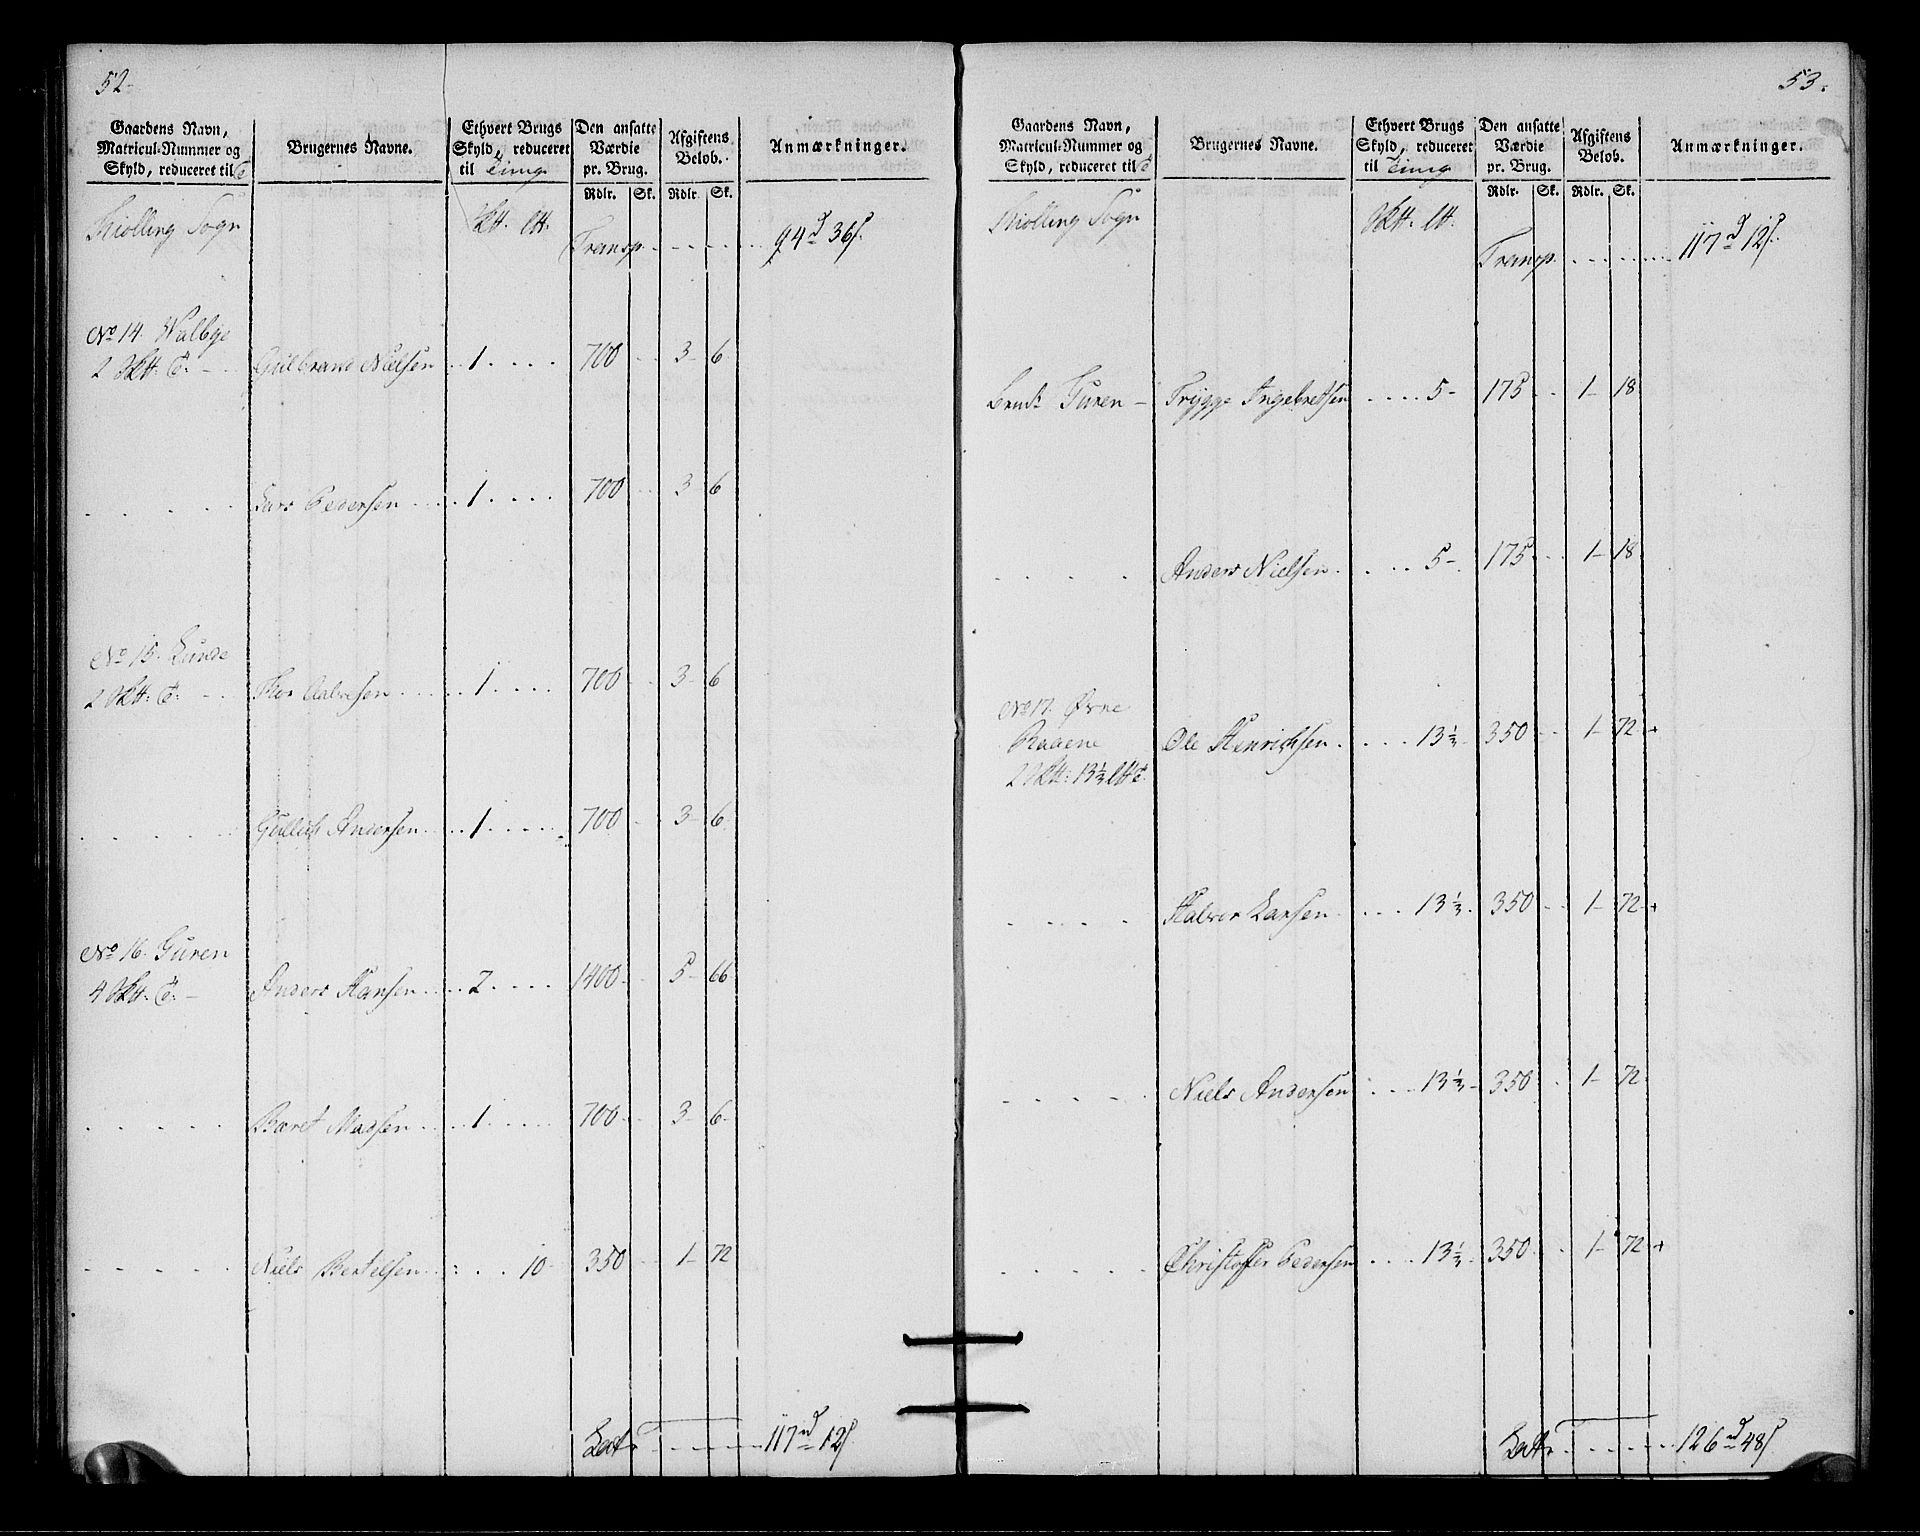 52.
Gaardens Navn, Matricul-Nummer og Skyld, reduceret til T | Brugernes Navne. | Ethvert Brugs Skyld, reduceret til Tung | Den ansatte Værdie pr. Brug. Rdlr. Sk. | Afgiftens Beløb. Rdlr. Sk. | Anmærkninger.
Skiolling Sogn
Transp. 94 d 36 s.
No 14. Walbye
2 T: Gulbrand Nielsen 1 700 3 6
Lars Pedersen 1 700 3 6
No 15. Lunde
2 T: Thor Halvorsen 1 700 3 6
Gullich Andersen 1 700 3 6
No 16. Guren
4 T: Anders Hansen 2 1400 5 66
Baret Madsen 1 700 3 6
Niels Bertelsen 10 350 1 72
Lats 117 rd 12 s
53.
Gaardens Navn, Matricul-Nummer og Skyld, reduceret til T | Brugernes Navne. | Ethvert Brugs Skyld, reduceret til Tung | Den ansatte Værdie pr. Brug. Rdlr. Sk. | Afgiftens Beløb. Rdlr. Sk. | Anmærkninger.
Skiolling Sogn
Transp. 117 rd 12 s.
Guren Trygge Ingebretsen 5 175 1 18
Anders Nielsen 5 175 1 18
No 17. Øvne
Raaene Ole Henrichsen 13 1/3 350 1 72 +
2 13 1/3 T:
Halvor Larsen 13 1/3 350 1 72 +
Niels Andersen 13 1/3 350 1 72
Christoffer Pedersen 13 1/3 350 1 72 +
Lats 126 rd 48 s